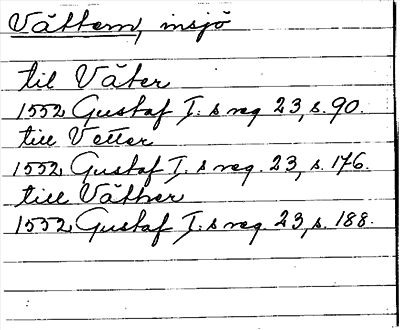 Vättern, insjö
til Väter
1552 Gustaf I:s reg 23, s. 90.
till Vetter
1552, Gustaf I:s reg. 23, s. 176.
till Väther
1552, Gustaf I:s reg. 23, s. 188.